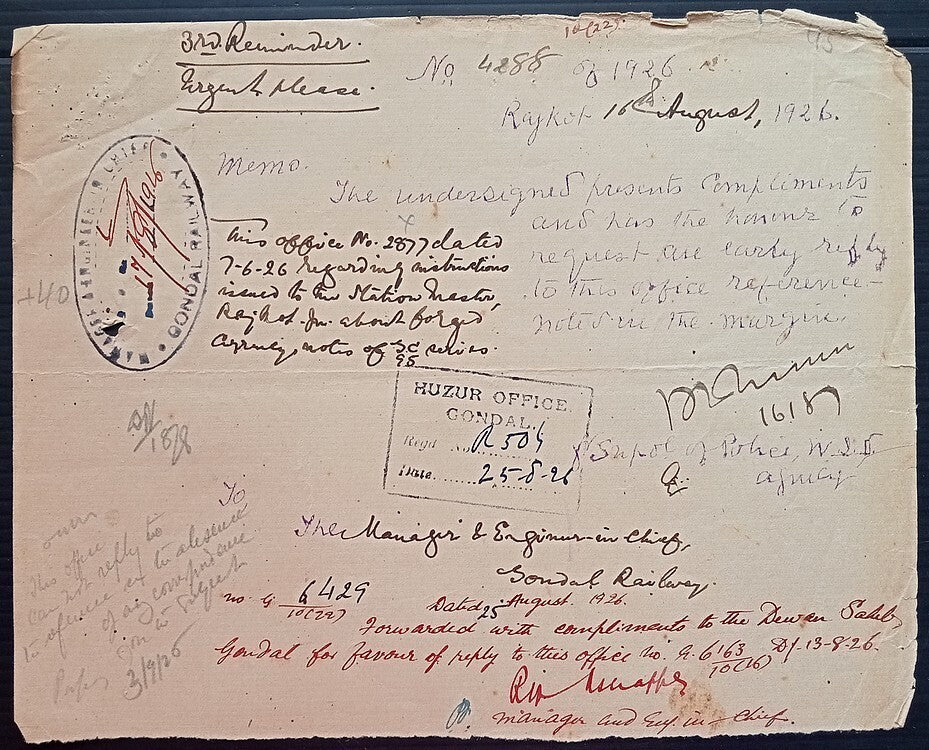 3rd Reminder.
Urgent please.
10(22)
95
No 4288 of 1926
Rajkot 16th August, 1926.
MANAGER & ENGINEER IN CHIEF
GONDAL RAILWAY
Memo.
The undersigned presents compliments
and has the honour to
request an early reply
to this office reference
noted in the margin.
This office No. 2877 dated
7-6-26 regarding instructions
issued to the Station Master,
Rajkot Jn. about forged
currency notes of SC series.
95
+40
HUZUR OFFICE.
GONDAL.
Regd R 504
Date 25-8-26
18/8
Supdt of Police, W.S.
Agency
To
The Manager & Engineer-in Chief,
Gondal Railway.
This office
can not reply to
in absence
of correspondence
on subject
3/9/26
no. G 6429
10(22)
Dated 25 August. 1926.
Forwarded with compliments to the Dewan Saheb
Gondal for favour of reply to this office no. G. 6163 Dt. 13-8-26.
manager and Eng in - Chief.